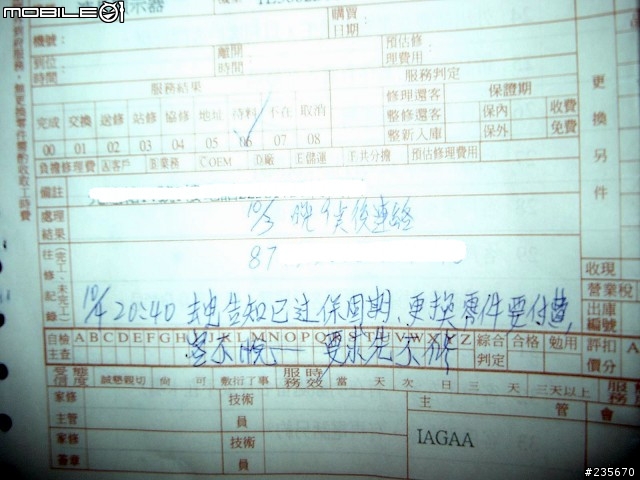 mobile01
示器
購買
日期
機號:
到位
時間
離開
時間
預估修
理費用
服務結果
服務判定
更換另件
完成 交換 送修 站修 協修 地址 待料 不在 取消
00 01 02 03 04 05 06 07 08
修理還客
整修還客
整新入庫
保證期
保內
保外
收費
免費
負擔修理費 Ⓐ客戶 Ⓑ業務 ⒸOEM Ⓓ廠 Ⓔ儲運 Ⓕ共分擔 預估修理費用
備註
處理
結果
10/3 晚 貨後連絡
87
往修記錄(完工、未完工)
10/4 20:40 去电告知已过保固期,更换零件要付費,
客不悅 要求先不修
收現
營業稅
出庫
編號
自檢
主查
A B C D E F G H M N O P Q U V W X Y Z
綜合
判定
合格 勉用
評扣
價分
A
受態
信度
誠懇親切 尚可 敷衍了事
服時
務效
當天 次日 三天 三天以上
家修
主管
技術
員
家修
簽章
技術
員
主管
會
IAGAA
#235670